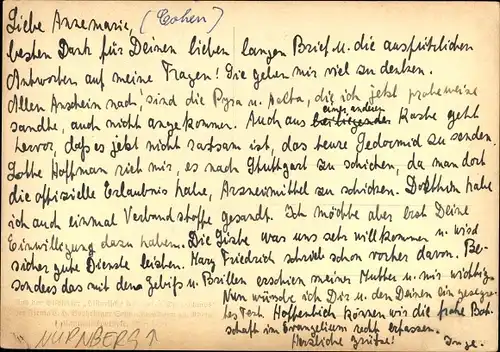 Liebe Annemarie, (Cohen)
besten Dank für Deinen lieben langen Brief u. die ausführlichen
Antworten auf meine Fragen! Sie geben mir viel zu denken.
Allen Anschein nach sind die Pyra u. Aalta, die ich jetzt probeweise
sandte, auch nicht angekommen. Auch aus einer anderen Karte geht
hervor, daß es jetzt nicht ratsam ist, das teure Gedormid zu senden.
Lotte Hoffmann riet mir, es nach Stuttgart zu schicken, da man dort
die offizielle Erlaubnis habe, Arzneimittel zu schicken. Dorthin habe
ich auch einmal Verbandstoffe gesandt. Ich möchte aber erst Deine
Einwilligung dazu haben. Die Liste was uns sehr willkommen u. wird
sicher gute Dienste leisten. Mary Friedrich schrieb schon vorher davon. Be-
sonders das mit dem Gebiss u. Brillen erschien meiner Mutter u. mir wichtig.
Nun wünsche ich Dir u. den Deinen ein gesegne-
tes Fest. Hoffentlich können wir die frohe Bot-
schaft im Evangelium recht erfassen.
Herzliche Grüße! Inge.
NÜRNBERG 1